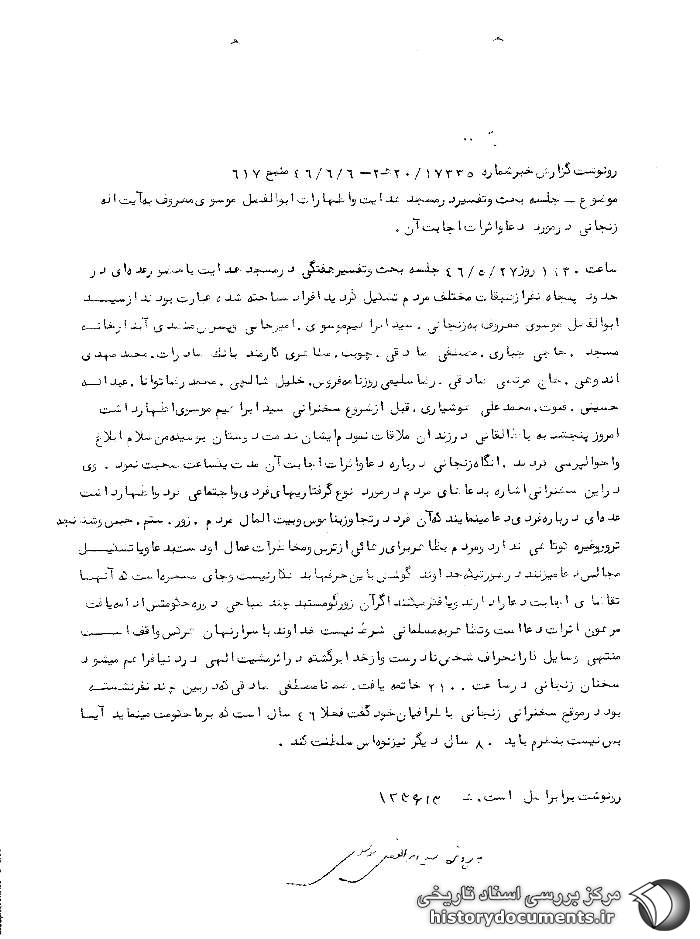 رونوشت گزارش خبر شماره ۱۷۳۳۵/ ۲۰ﻫ۲ – ۴۶/۶/۶ منبع ۶۱۷
موضوع – جلسه بحث وتفسیر در مسجد هدایت واظهارات ابوالفضل موسوی معروف به آیت اله
زنجانی در مورد دعا واثرات اجابت آن .
ساعت ۱۹۳۰ روز ۴۶/۵/۲۷ جلسه بحث وتفسیر هفتگی در مسجد هدایت با حضور عده ای در
حدود پنجاه نفر از طبقات مختلف مردم تشکیل گردید افراد شناخته شده عبارت بودند از سید
ابوالفضل موسوی معروف به زنجانی . سید ابراهیم موسوی . امیرحانی وپسرش مهدی آبدارخانه
مسجد . حاجی جباری . مصطفی صادقی . چوپت . کارمند بانک صادرات . محمد مهدی
حاج مرتضی صادقی . رضا سلیمی روزنامه فروش . خلیل شالچی . محمد رضا توانا . عبداله
حسینی . محمد علی هوشیاری . قبل از شروع سخنرانی سید ابراهیم موسوی اظهار داشت
امروز پنجشنبه با طالقانی در زندان ملاقات نمودم ایشان خدمت دوستان بوسیله من سلام ابلاغ
واحوالپرسی کردند . آنگاه زنجانی درباره دعا واثرات اجابت آن مدت یکساعت صحبت نمود . وی
در این سخنرانی اشاره به دعاهای مردم در مورد نوع گرفتاریهای فردی واجتماعی کرد واظهار داشت
عده ای درباره فردی دعا مینمایند که آن فرد در تجاوز بناموس وبیت المال مردم . زور . ستم . حبس وشکنجه
ترور وغیره کوتاهی ندارد ومردم بظاهر برای رهائی از ترس ومخاطرات عمال او دست بدعا ویا تشکیل
مجالس دعا میزنند در صورتیکه خداوند گوشش با این حرفها بدهکار نیست وجای مسخره است که آنها
تقاضای اجابت دعا را دارند ویا فکر میکنند اگر آن زورگو مستبد چند صباحی دوره حکومتش ادامه یافت
مرهون اثرات دعا است وتظاهر به مسلمانی شرط نیست خداوند با سرار نهان هرکس واقف است
منتهی وسایل کار انحراف شخص نادرست واز خدا برگشته در اثر مشیت الهی در دنیا فراهم میشود
سخنان زنجانی در ساعت ۲۱۰۰ خاتمه یافت . ضمنا مصطفی صادقی که در بین چند نفر نشسته
بود در موقع سخنرانی زنجانی با طرافیان خود گفت فعلا ۴۶ سال است که بر ما حکومت مینماید آیا
بس نیست بنظرم باید ۸۰ سال دیگر نیز نوه اش سلطنت کند .
رونوشت برابر اصل است.
در پرونده سید ابوالفضل موسوی
مرکز بررسی اسناد تاریخی
historydocuments.ir